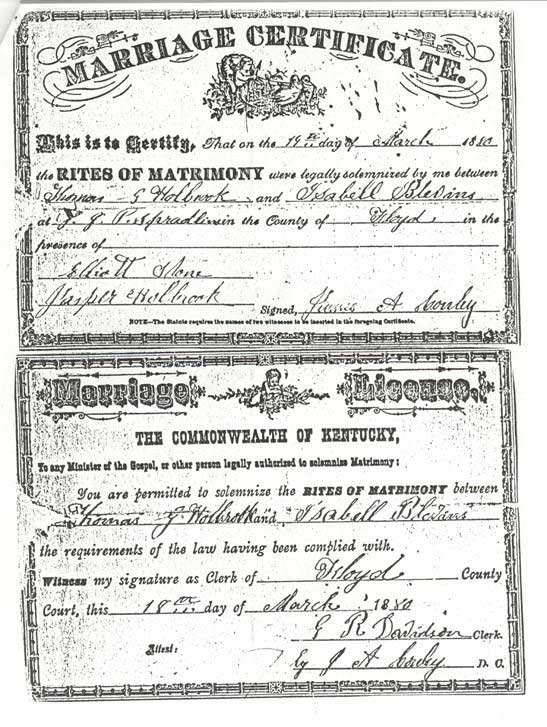 MARRIAGE CERTIFICATE.
This is to Certify, That on the 19th day of March 1880
the RITES OF MATRIMONY were legally solemnized by me between
Thomas G Holbrook and Isabell Bledins
at J. J. P. Spradlins in the County of Floyd in the
presence of
Elliott Stone
Jasper Holbrook
Signed, A Conley
NOTE—The Statute requires the names of two witnesses to be inserted in the foregoing Certificate.
Marriage License.
THE COMMONWEALTH OF KENTUCKY,
To any Minister of the Gospel, or other person legally authorized to solemnize Matrimony:
You are permitted to solemnize the RITES OF MATRIMONY between
Thomas G Holbrook and Isabell Bledins
the requirements of the law having been complied with.
Witness my signature as Clerk of Floyd County
Court, this 18th day of March 1880
G R Davidson Clerk.
Attest: by J A Conley D. C.